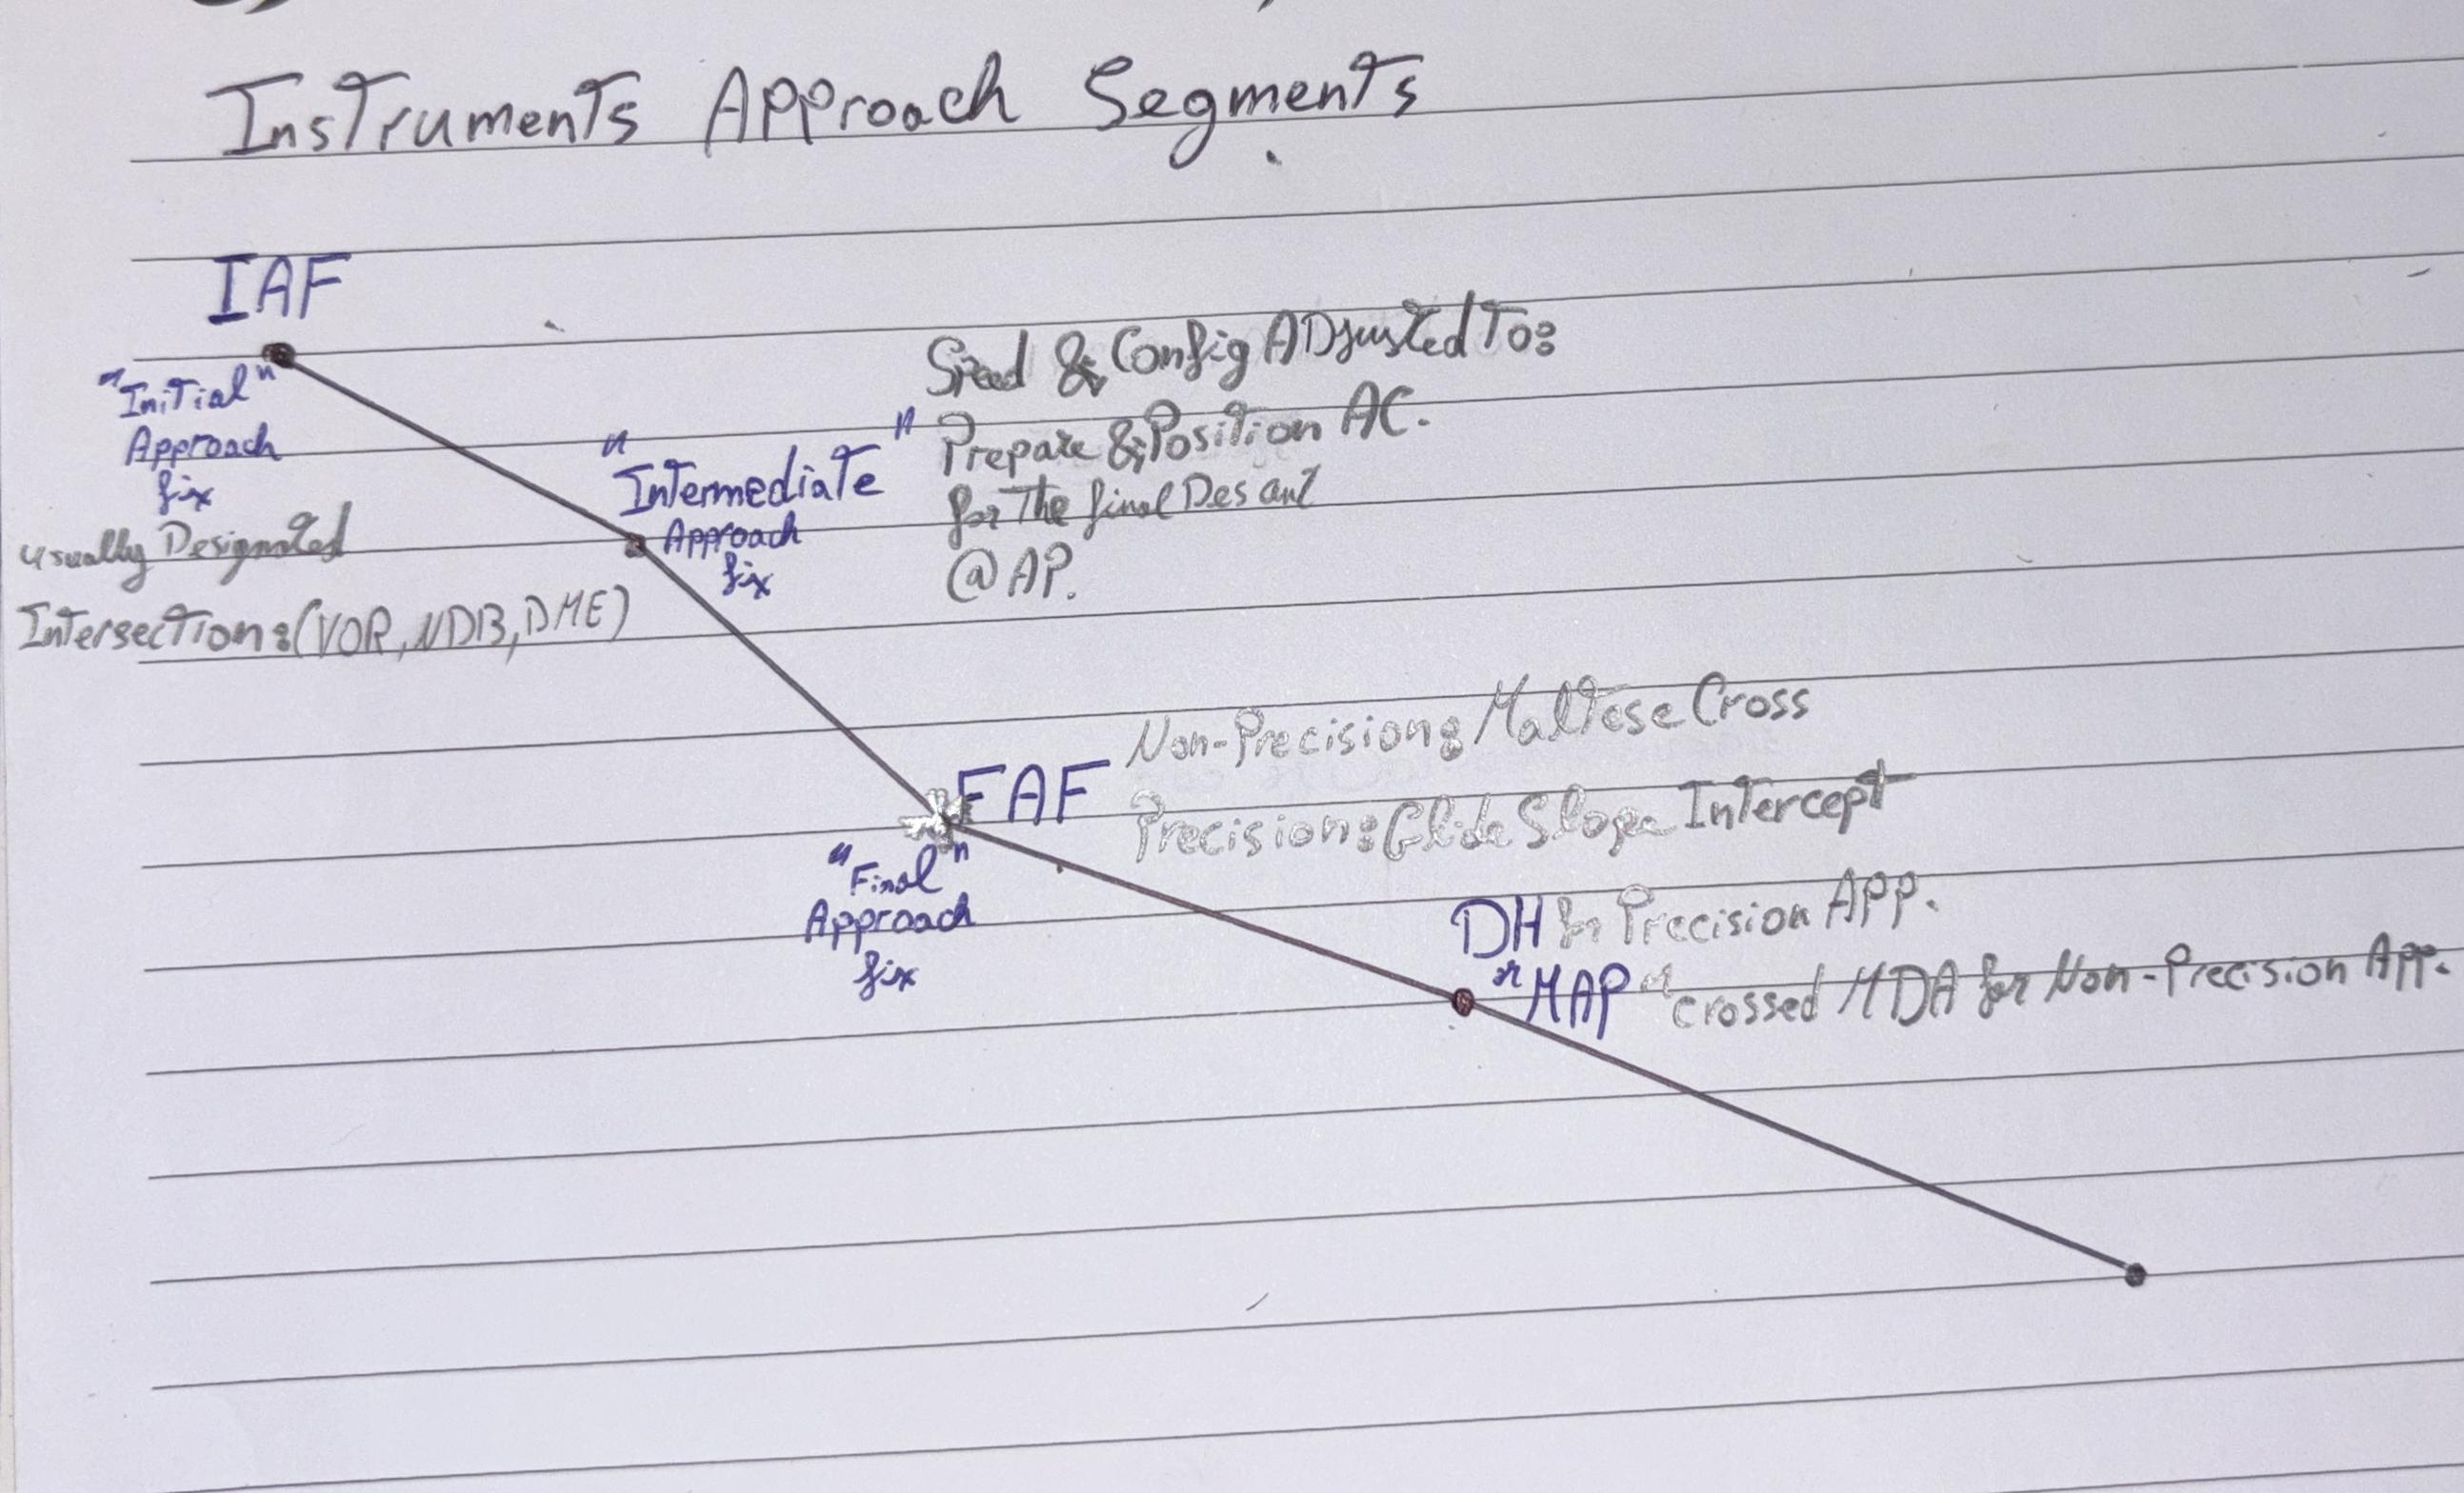 Instruments Approach Segments
IAF
"Initial"
Approach
fix
usually Designated
Intersection:(VOR, NDB, DME)
"Intermediate"
Approach
fix
Speed & Config ADjusted To:
Prepare & Position AC.
for The final Desant
@ AP.
FAF
"Final"
Approach
fix
Non-Precision: Maltese Cross
Precision: Glide Slope Intercept
DH for Precision APP.
"MAP" crossed MDA for Non-Precision App.